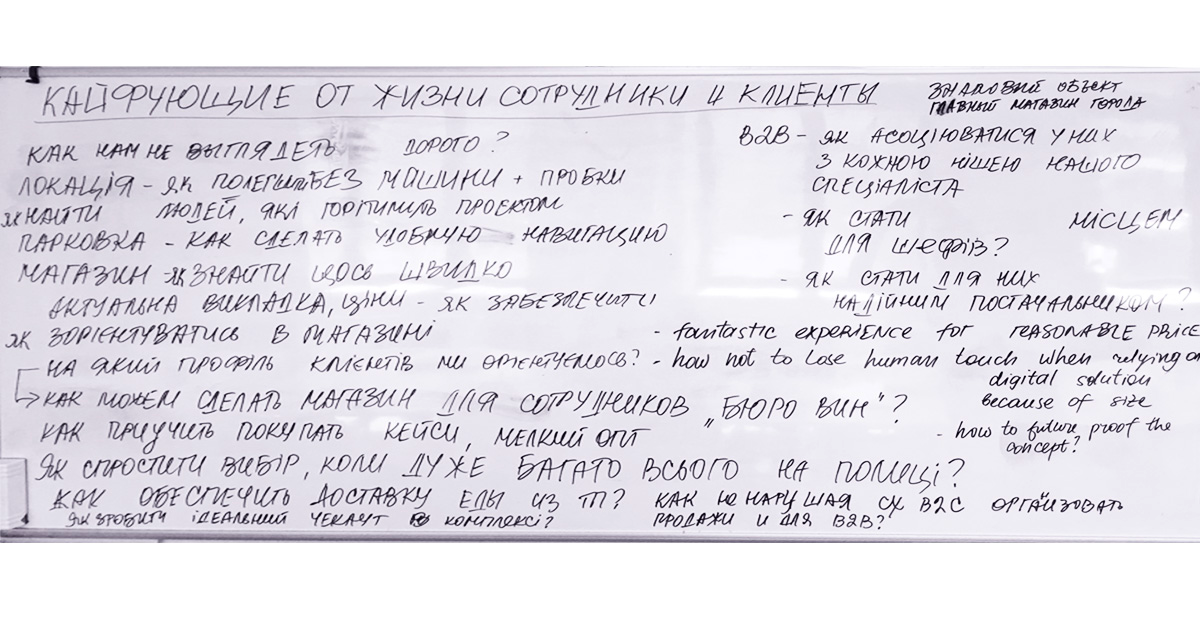 КАЙФУЮЩИЕ ОТ ЖИЗНИ СОТРУДНИКИ И КЛИЕНТЫ
ЗНАКОВИЙ ОБЪЕКТ
ГЛАВНЫЙ МАГАЗИН ГОРОДА
КАК НАМ НЕ ВЫГЛЯДЕТЬ ДОРОГО?
ЛОКАЦІЯ - ЯК БЕЗ МАШИНИ + ПРОБКИ
ЯК НАЙТИ ЛЮДЕЙ, ЯКІ ГОРІТИМУТЬ ПРОЄКТОМ
ПАРКОВКА - КАК СДЕЛАТЬ УДОБНУЮ НАВИГАЦИЮ
МАГАЗИН - ЯК ЗНАЙТИ ЩОСЬ ШВИДКО
АКТУАЛЬНА ВИКЛАДКА, ЦІНИ - ЯК ЗАБЕЗПЕЧИТИ
ЯК ЗОРІЄНТУВАТИСЬ В МАГАЗИНІ
НА ЯКИЙ ПРОФІЛЬ КЛІЄНТІВ МИ ОРІЄНТУЄМОСЬ?
КАК МОЖЕМ СДЕЛАТЬ МАГАЗИН ДЛЯ СОТРУДНИКОВ „БЮРО ВИН"?
КАК ПРИУЧИТЬ ПОКУПАТЬ КЕЙСИ, МЕЛКИЙ ОПТ
ЯК СПРОСТИТИ ВИБІР, КОЛИ ДУЖЕ БАГАТО ВСЬОГО НА ПОЛИЦІ?
КАК ОБЕСПЕЧИТЬ ДОСТАВКУ ЕДЫ ИЗ ТГ?
ЯК ЗРОБИТИ ІДЕАЛЬНИЙ ЧЕКАУТ В КОМПЛЕКСІ?
B2B - ЯК АСОЦІЮВАТИСЯ У НИХ
З КОЖНОЮ НІШЕЮ НАШОГО
СПЕЦІАЛІСТА
- ЯК СТАТИ МІСЦЕМ
ДЛЯ ШЕФІВ?
- ЯК СТАТИ ДЛЯ НИХ
НАДІЙНИМ ПОСТАЧАЛЬНИКОМ?
- fantastic experience for REASONABLE PRICE
- how not to lose human touch when relying on
digital solution
because of size
- how to future proof the
concept?
КАК НЕ НАРУШАЯ СХ B2C ОРГАНИЗОВАТЬ
ПРОДАЖИ И ДЛЯ B2B?